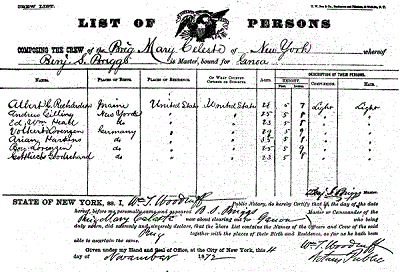 CREW LIST.
LIST OF PERSONS
COMPOSING THE CREW of the Brig Mary Celeste of New York whereof
Benj S. Briggs is Master, bound for Genoa
NAMES. PLACES OF BIRTH. PLACES OF RESIDENCE. OF WHAT COUNTRY CITIZENS OR SUBJECTS. AGES. HEIGHT. DESCRIPTION OF THEIR PERSONS.
Feet Inches COMPLEXION. HAIR.
Albert G. Richardson Maine United States United States 28 5 8 Light Light
Andrew Gilling New York 25 5 8
Ed. Wm Head do 23 5 8
Volkert Lorenzen Germany 29 5
Arian do 35 5
Boy Lorenzen do 23 5
Gottlieb do 5
Benj S Briggs
STATE OF NEW YORK, SS. I, Wm T. Woodruff Public Notary, do hereby Certify that on the day of the date
hereof, before me personally came and appeared B. S. Briggs Master or Commander of the
Brig Mary Celeste now about clearing out for Genoa who being
duly sworn, did solemnly and sincerely declare, that the above List contains the Names of the Officers and Crew of the said
Brig together with the places of their Birth and Residence, as far as he hath been
able to ascertain the same.
Given under my Hand and Seal of Office, at the City of New York, this 4
day of November 1872
Wm T. Woodruff
Notary Public